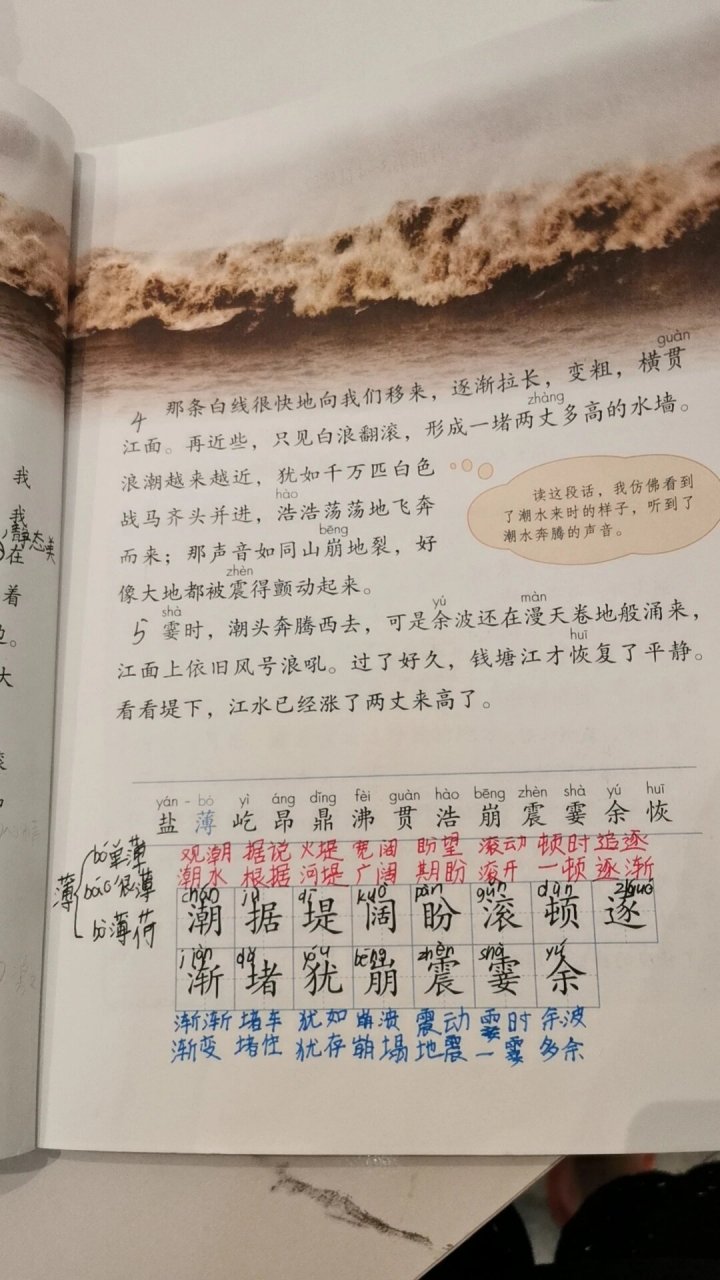 guàn
4 那条白线很快地向我们移来，逐渐拉长，变粗，横贯
zhàng
江面。再近些，只见白浪翻滚，形成一堵两丈多高的水墙。
浪潮越来越近，犹如千万匹白色
hào
战马齐头并进，浩浩荡荡地飞奔
bēng
而来；那声音如同山崩地裂，好
zhèn
像大地都被震得颤动起来。
读这段话，我仿佛看到
了潮水来时的样子，听到了
潮水奔腾的声音。
shà yú màn
5 霎时，潮头奔腾西去，可是余波还在漫天卷地般涌来，
huī
江面上依旧风号浪吼。过了好久，钱塘江才恢复了平静。
看看堤下，江水已经涨了两丈来高了。
我
我
静态美
在
着
大
yán bó yì áng dǐng fèi guàn hào bēng zhèn shà yú huī
盐 薄 屹 昂 鼎 沸 贯 浩 崩 震 霎 余 恢
薄
bó单薄
báo很薄
bò薄荷
观潮 据说 火堤 宽阔 盼望 滚动 顿时 追逐
潮水 根据 河堤 广阔 期盼 滚开 一顿 逐渐
潮 据 堤 阔 盼 滚 顿 逐
渐 堵 犹 崩 震 霎 余
渐渐 堵车 犹如 崩溃 震动 霎时 余波
渐变 堵住 犹存 崩塌 地震 一霎 多余